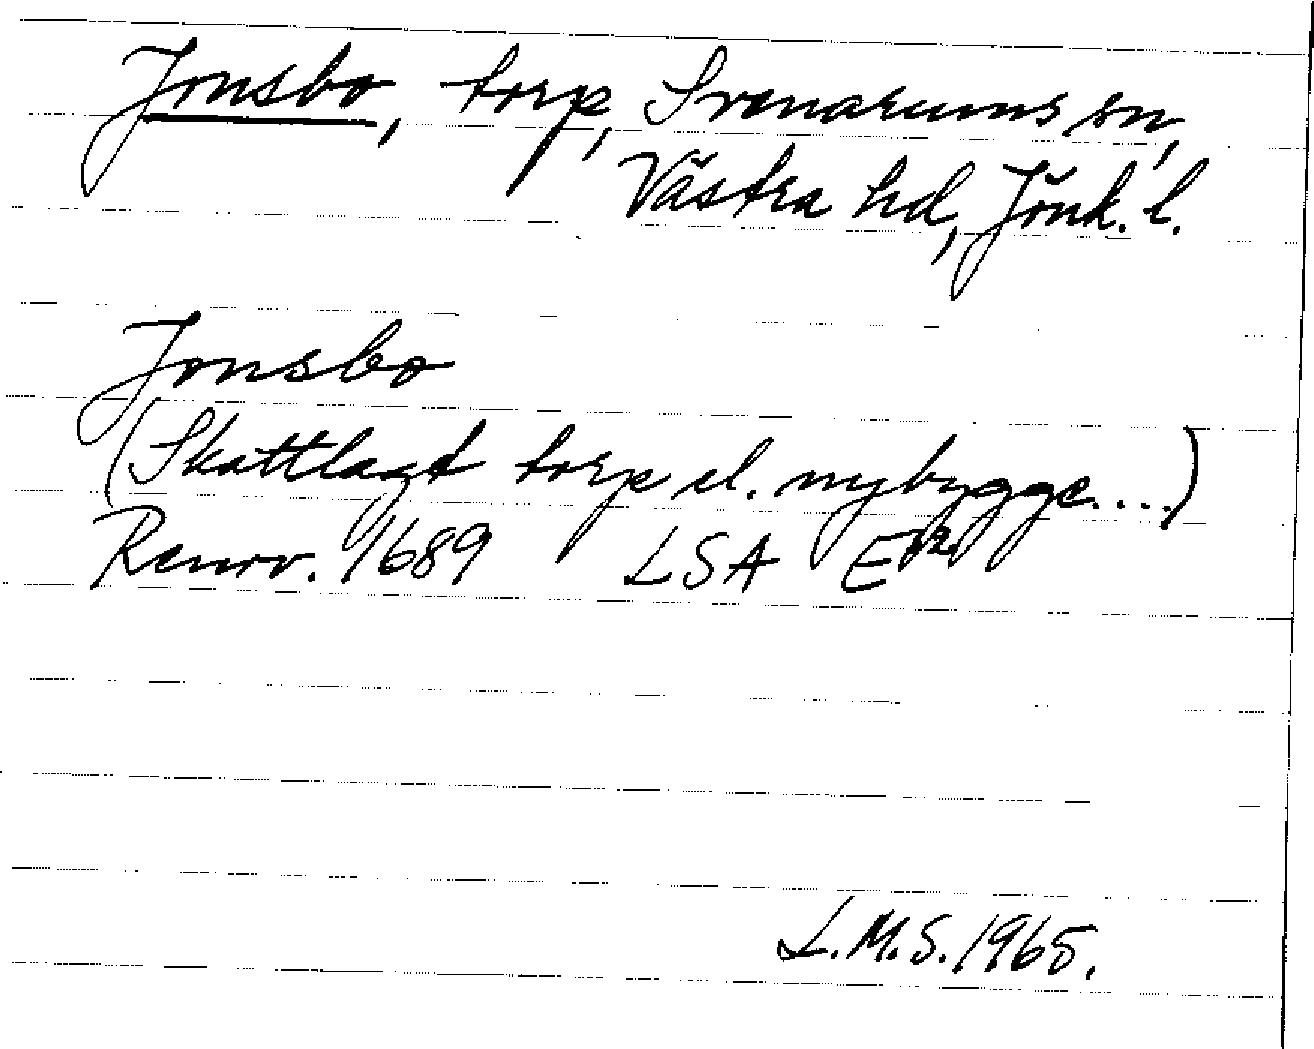 Jonsbo, torp, Svenarums sn,
Västra hd, Jönk. l.
Jonsbo
(Skattlagt torp el. nybygge....)
Renov. 1689 LSA E12
L.M.S. 1965.